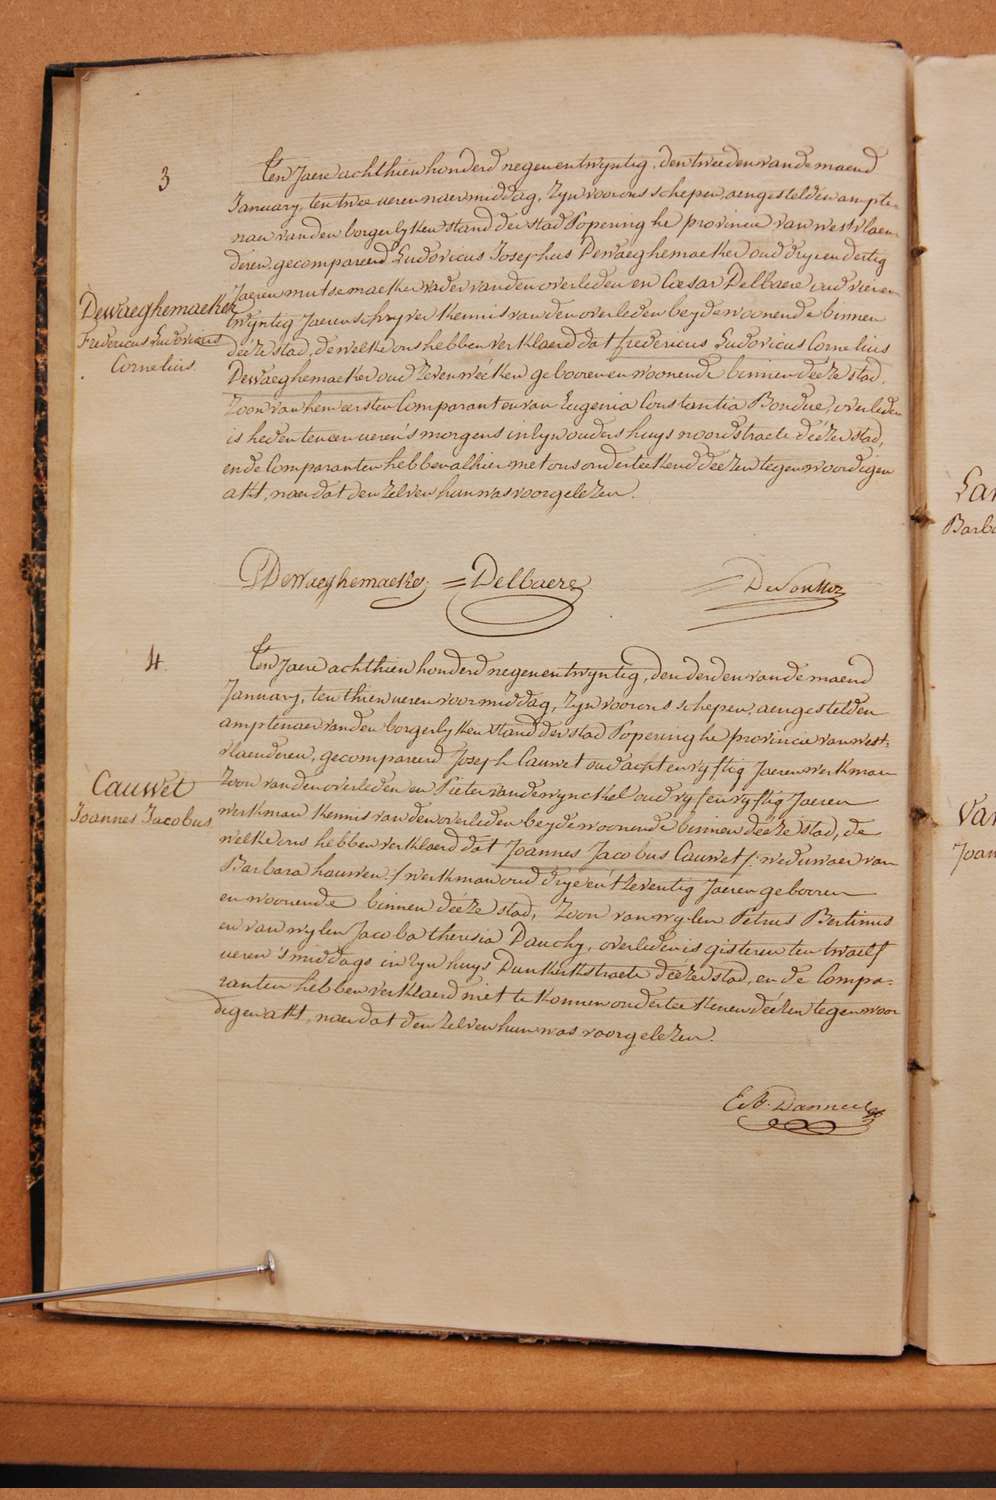 3
Ten Jaere achthien honderd negenentwyntig, den tweeden van de maend
January, ten twee ueren naermiddag, zyn voor ons schepen, aengestelden ampte-
naer van den borgerlyken stand der stad Poperinghe provincie van westvlaen-
deren, gecompareerd Ludovicus Josephus Dewaeghemaeker oud dryendertig
Jaeren mutsemaeker vader van den overleden en Cæsar Delbaere oud vieren
twyntig Jaeren schryver kennis van den overleden beyde woonende binnen
deéze stad, dewelke ons hebben verklaerd dat fredericus Ludovicus Cornelius
Dewaeghemaeker oud zeven weéken gebooren en woonende binnen deéze stad,
zoon van hem eersten Comparant en van Eugenia Constantia Bondue, overleden
is heden ten een ueren 's morgens in zyn ouders huys noordstraete deézer stad,
en de Comparanten hebben alhier met ons onderteekend deézen tegenwoordigen
akt, naer dat den zelven hun was voorgelezen.
Dewaeghemaeker
Fredericus Ludovicus
Cornelius
Dewaeghemaeker = Delbaere
4
Ten Jaere achthien honderd negenentwyntig, den derden van de maend
January, ten thien ueren voormiddag, zyn voor ons schepen, aengestelden
amptenaer van den borgerlyken stand der stad Poperinghe provincie van west-
vlaenderen, gecompareerd Joseph Cauwet oud acht en vyftig Jaeren werkman
zoon van den overleden en Pieter vandewynckel oud vyf en vyftig Jaeren
werkman kennis van den overleden beyde woonende binnen deéze stad, de
welke ons hebben verklaerd dat Joannes Jacobus Cauwet /: weduwaer van
Barbara hauwen :/ werkman oud dryen tzeventig Jaeren gebooren
en woonende binnen deéze stad, zoon van wylen Petrus Bertinus
en van wylen Jacoba theresia Dauchy, overleden is gisteren ten twaelf
ueren 's middags in zyn huys Dunkerkstraete deézer stad, en de Compa-
ranten hebben verklaerd niet te konnen onderteekenen deézen tegenwoor
digen akt, naer dat den zelven hun was voorgelezen.
Cauwet
Joannes Jacobus
Danneel
Barb
Joan